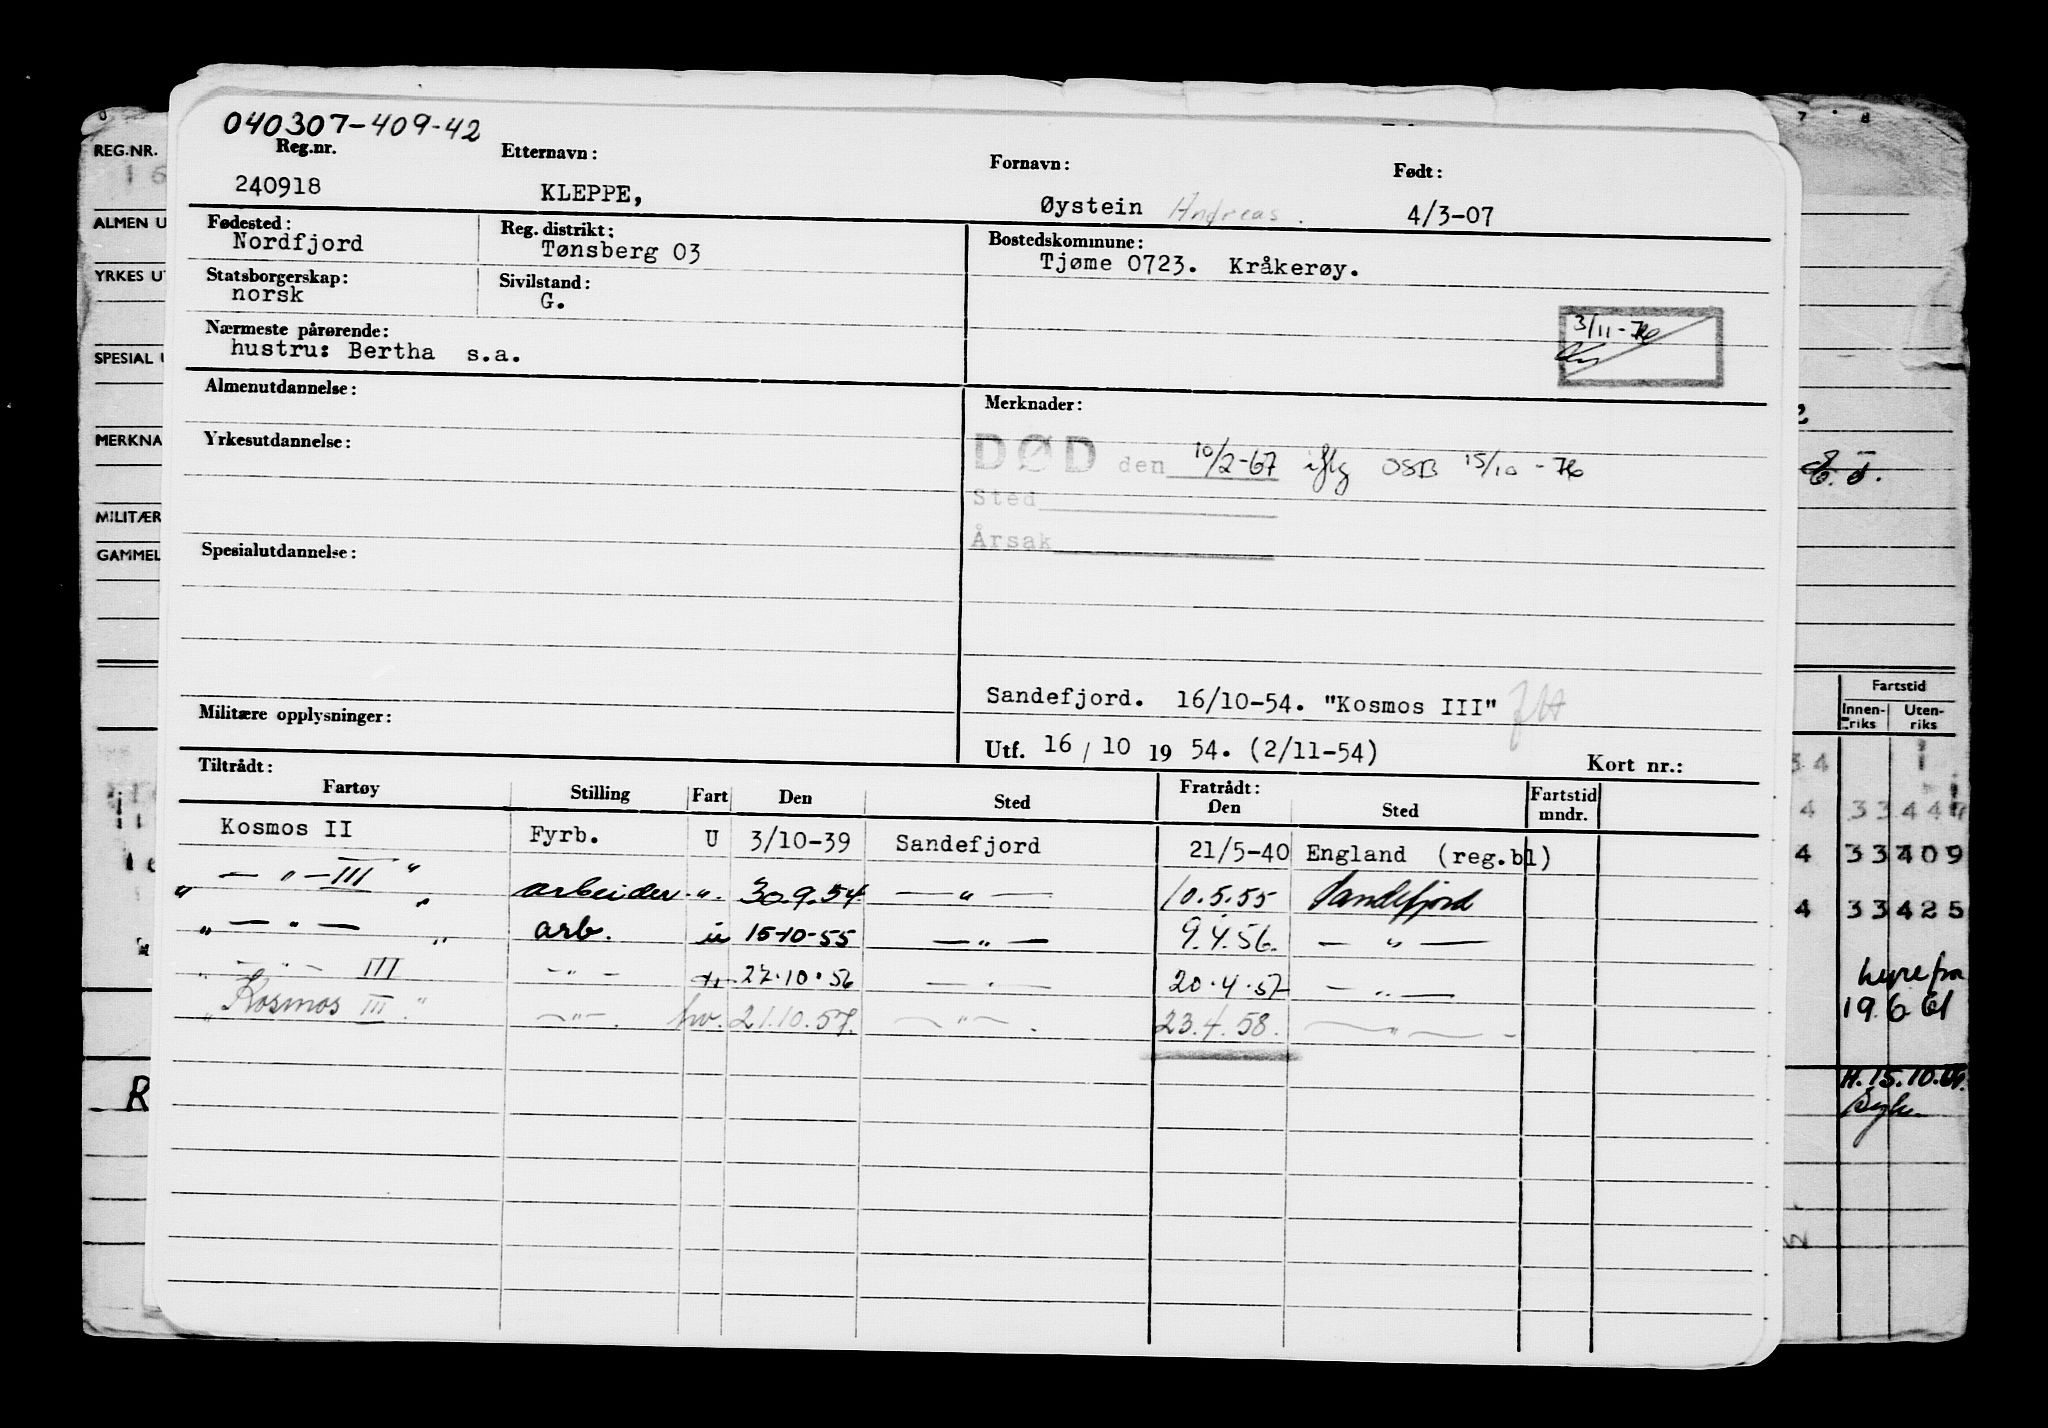 040307-409-42
Reg.nr. Etternavn: Fornavn: Født:
240918 KLEPPE, Øystein Andreas. 4/3-07
Fødested: Reg. distrikt: Bostedskommune:
Nordfjord Tønsberg 03 Tjøme 0723. Kråkerøy.
Statsborgerskap: Sivilstand:
norsk G.
3/11-76
Nærmeste pårørende:
hustru: Bertha s.a.
Almenutdannelse: Merknader:
Yrkesutdannelse:
DØD den 10/2-67 iflg OSB 15/10-76
Sted
Årsak
Spesialutdannelse:
Sandefjord. 16/10-54. "Kosmos III"
Militære opplysninger:
Utf. 16/10 1954. (2/11-54) Kort nr.:
Tiltrådt: Fratrådt:
Fartøy Stilling Fart Den Sted Den Sted Fartstid mndr.
Kosmos II Fyrb. U 3/10-39 Sandefjord 21/5-40 England (reg.bl)
" — " — III " arbeider " 30.9.54 — " — 10.5.55 Sandefjord
" — " — " arb. u 15-10-55 — " — 9.4.56. — " —
" — " — III — " — 27.10.56 — " — 20.4.57 — " —
" Kosmos III " — " — . hv. 21.10.57. — " — . 23.4.58. — " —
REG.NR.
16
ALMEN U
YRKES UT
SPESIAL U
MERKNA
MILITÆR
GAMMEL
R
Fartstid
Innen-riks Uten-riks
34
4 33 449
4 33 409
4 33 425
hyre fra
19.6.61